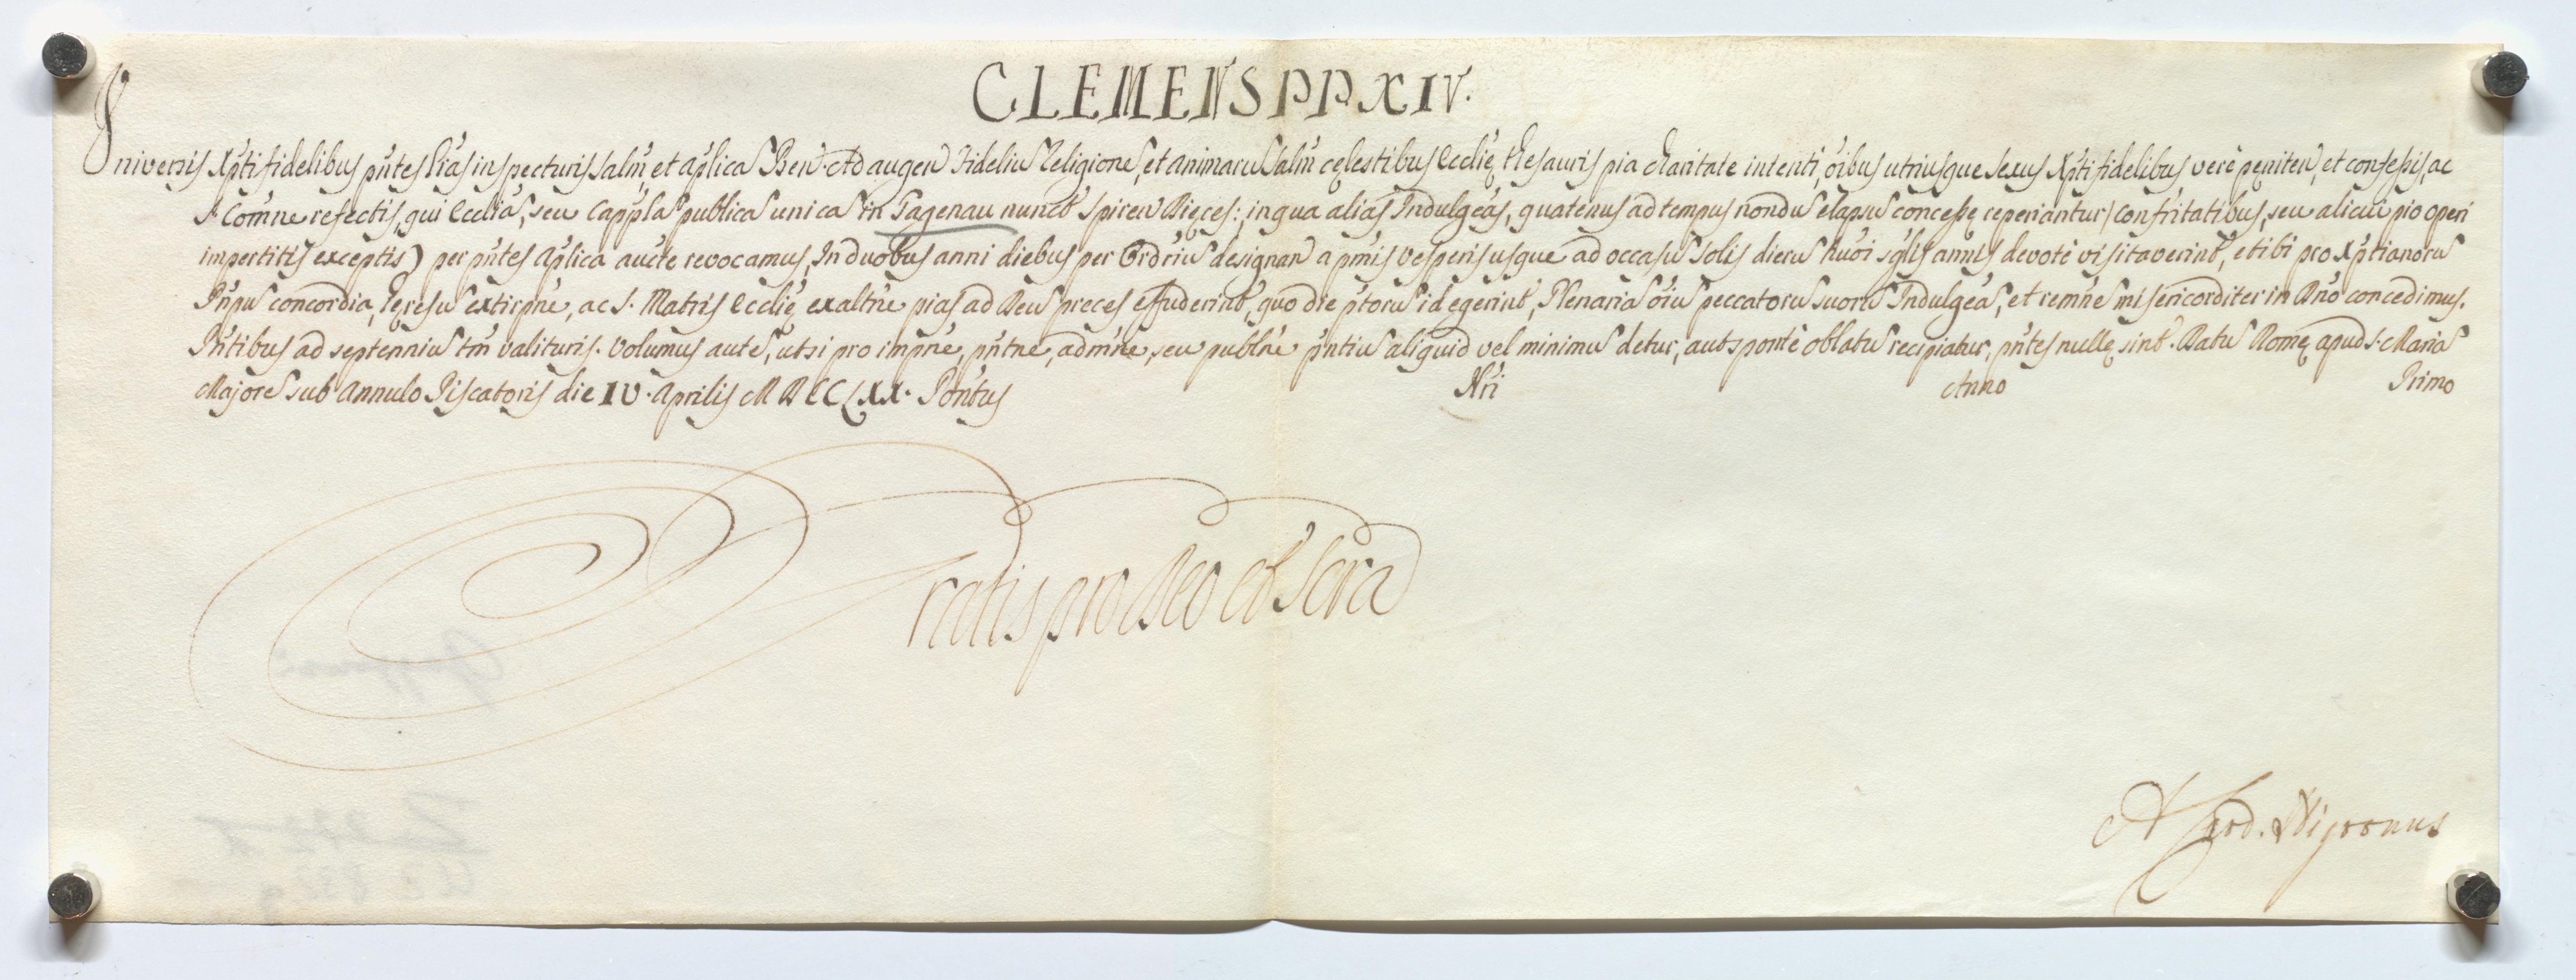 CLEMENS PP. XIV.
Universis Xp̃tifidelibus pñtes Lrãs inspecturis salm̃, et ap̃lica Ben. Ad augen fideliu Religione, et animaru salm̃ cęlestibus Ecclię thesauris pia charitate intenti, oĩbus utriusque sexus Xp̃tifidelibus verè pęniten, et confeßis, ac
S. Com̃ne refectis, qui Eccliã, seu Capp̃la publica unica in Tagenau nuncͭ Spiren Diȩces:, in qua alias Indulgẽas, quatenus ad tempus nondu elapsu conceßę reperiantur (confr̃itatibus, seu alicui pio operi
impertitis exceptis) per pñtes ap̃lica auctẽ revocamus, In duobus anni diebus per Ordr̃iu designan a pm̃is vesperis usque ad occasu Solis dieru huõi sgl̃is annis devotè visitaverint, et ibi pro Xp̃tianoru
Pñpu concordia, hęresu extirpñe, ac S. Matris Ecclię exaltñe pias ad Deu preces effuderint, quo die p̃toru id egerint, Plenaria oĩu peccatoru suoru Indulgẽa, et remñe misericorditer in Dño concedimus.
Pñtibus ad septenniu tm̃ valituris. Volumus aute, ut si pro impñe, pñtne, admñe, seu publñe pñtiu aliquid vel minimu detur, aut sponte oblatu recipiatur, pñtes nullę sint. Datu Romę apud S. Maria
Majore sub Annulo Piscatoris die IV. Aprilis MDCCLXX. Pontũs Nri Anno Primo
Gratis pro Deo et Scra
A Card. Nigronus